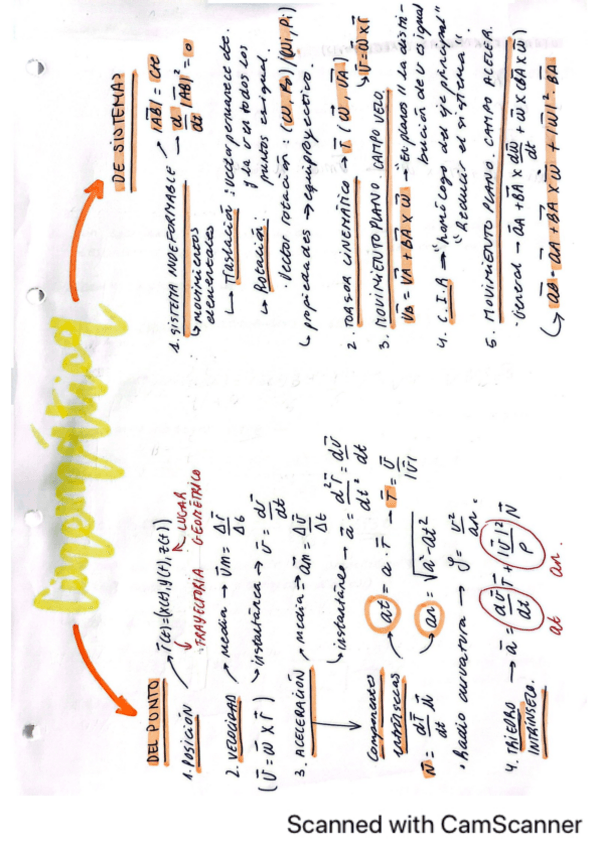 Cinemática
DEL PUNTO
1. POSICIÓN → r̄(t)=(x(t), y(t), z(t))
TRAYECTORIA ↔ LUGAR GEOMÉTRICO
2. VELOCIDAD → media → v̄m = Δr̄/Δt
(v̄ = ω̄ x r̄)
↳ instantánea → v̄ = dr̄/dt
3. ACELERACIÓN → media → a̅m = Δv̄/Δt
↳ instantánea → ā = d²r̄/dt² = dv̄/dt
Componentes intrínsecas
at = a · T → T = v̄/|v̄|
an = √a² - at²
N̄ = dT̄/dt
· Radio curvatura → ρ = v²/an
4. TRIEDRO INTRÍNSECO. → ā = dv̄/dt T̄ + |v̄|²/ρ N̄
at an.
DE SISTEMAS
1. SISTEMA INDEFORMABLE → |AB| = cte
→ d/dt |AB|² = 0
↳ movimientos elementales
↳ Traslación: vector permanece cte. y la v en todos los puntos es igual.
↳ Rotación:
· Vector rotación: (ω̄, Po)/(ωi, Pi)
↳ propiedades → equiproyectivo.
2. TORSOR CINEMÁTICO → T (ω̄, VA)
↳ v̄ = ω̄ x r̄
3. MOVIMIENTO PLANO. CAMPO VELO.
VB = VA + BA x ω̄ "en planos // la distribución de v es igual
4. C.I.R → "homólogo del eje principal"
"Reducir el sistema".
5. MOVIMIENTO PLANO. CAMPO ACELER.
· General → aA + BA x dω̄/dt + ω̄ x (BA x ω̄)
↳ aB = aA + BA x ω̄ + |ω̄|² · BA
Scanned with CamScanner